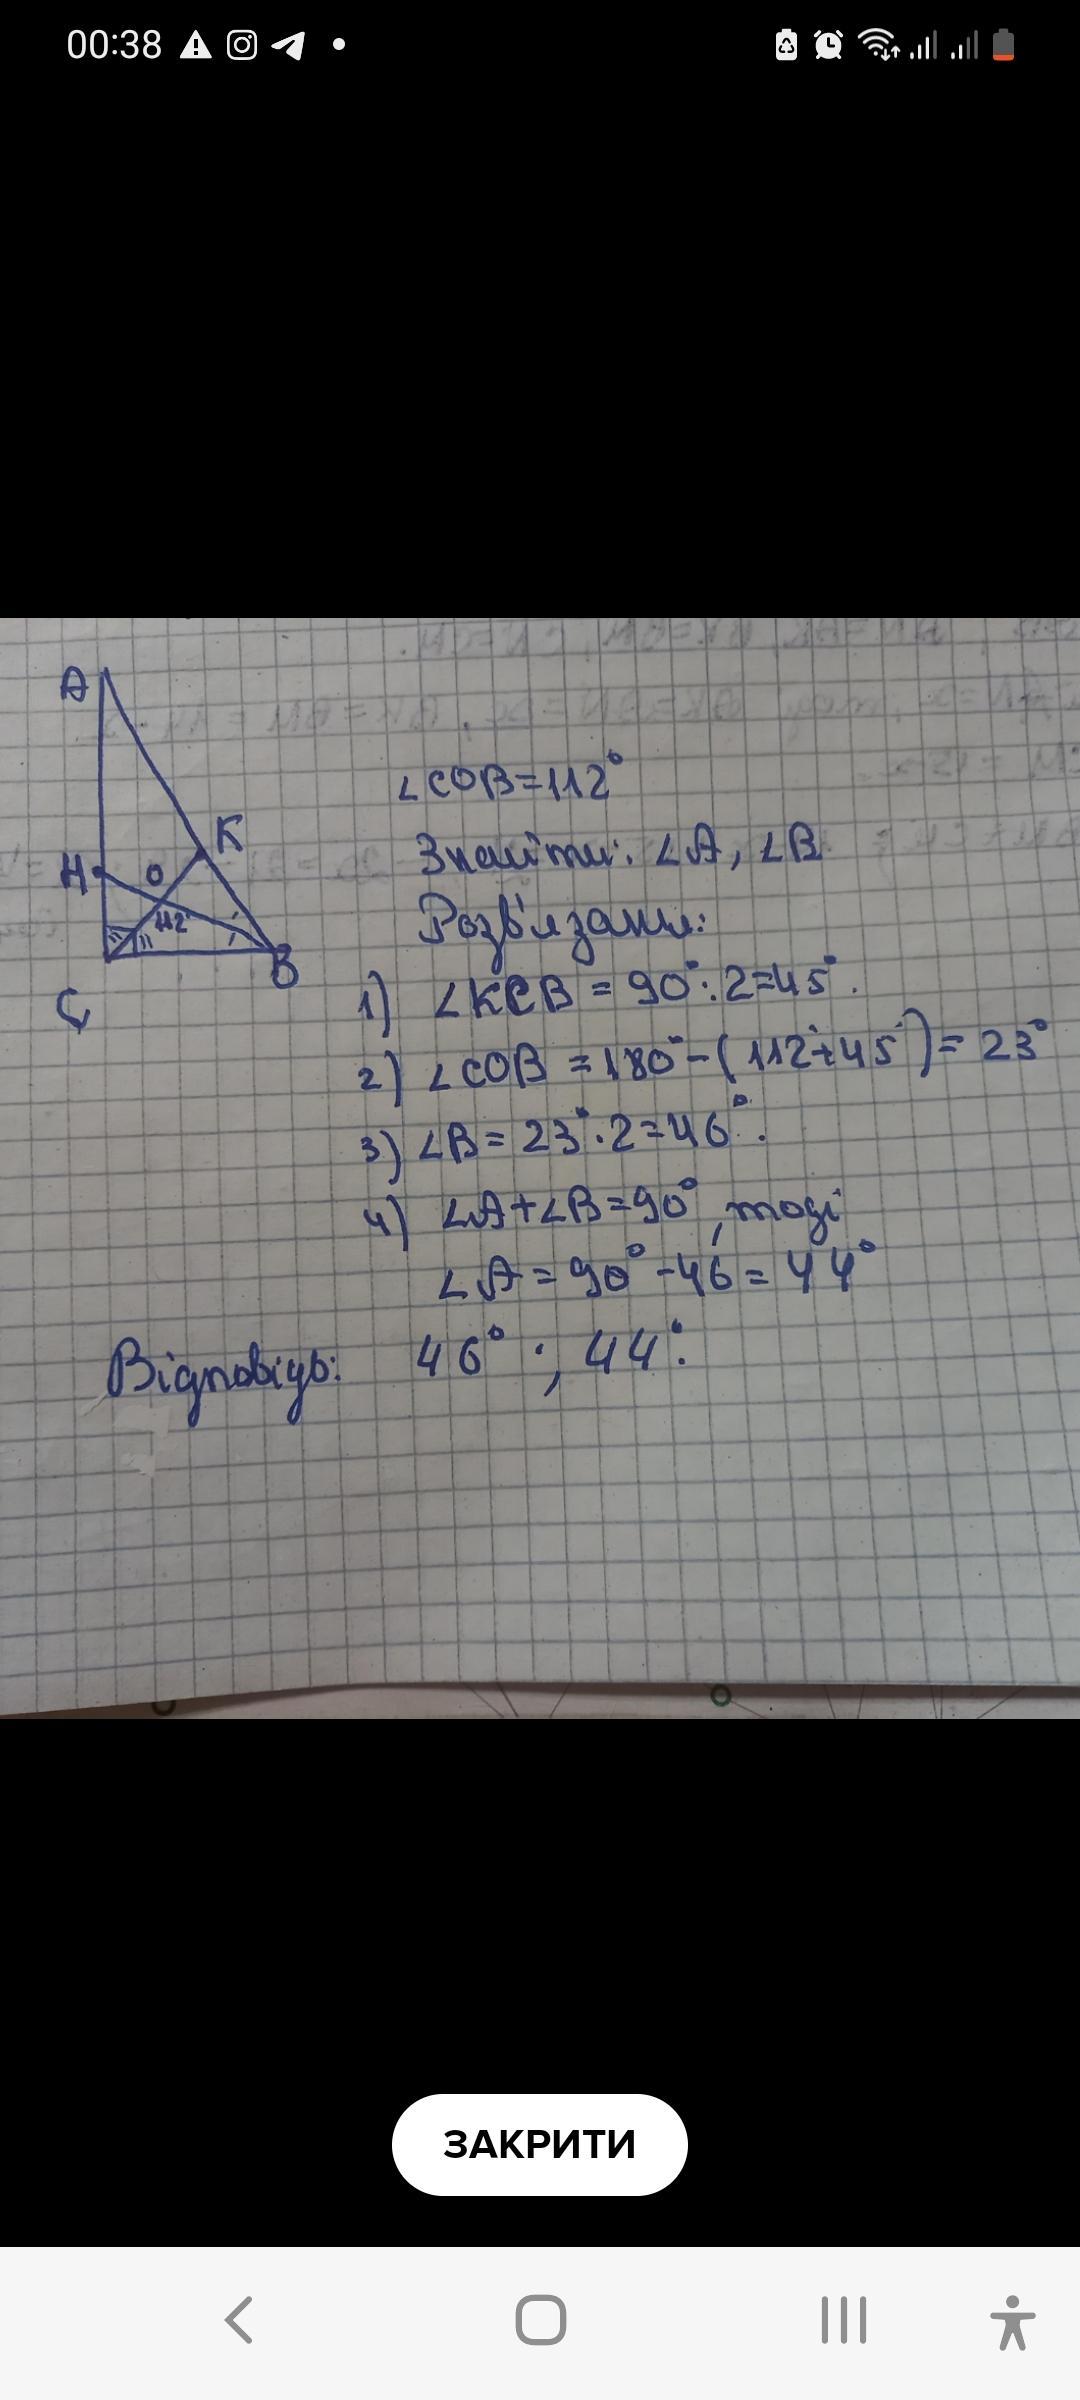 00:38
A
K
H
O
112°
B
C
∠COB=112°
Знайти: ∠A, ∠B
Розв'язання:
1) ∠KCB = 90°:2=45°.
2) ∠COB =180°-(112°+45°)= 23°
3) ∠B= 23°·2=46°.
4) ∠A+∠B=90°, тоді
∠A=90°-46=44°
Відповідь: 46°; 44°.
ЗАКРИТИ